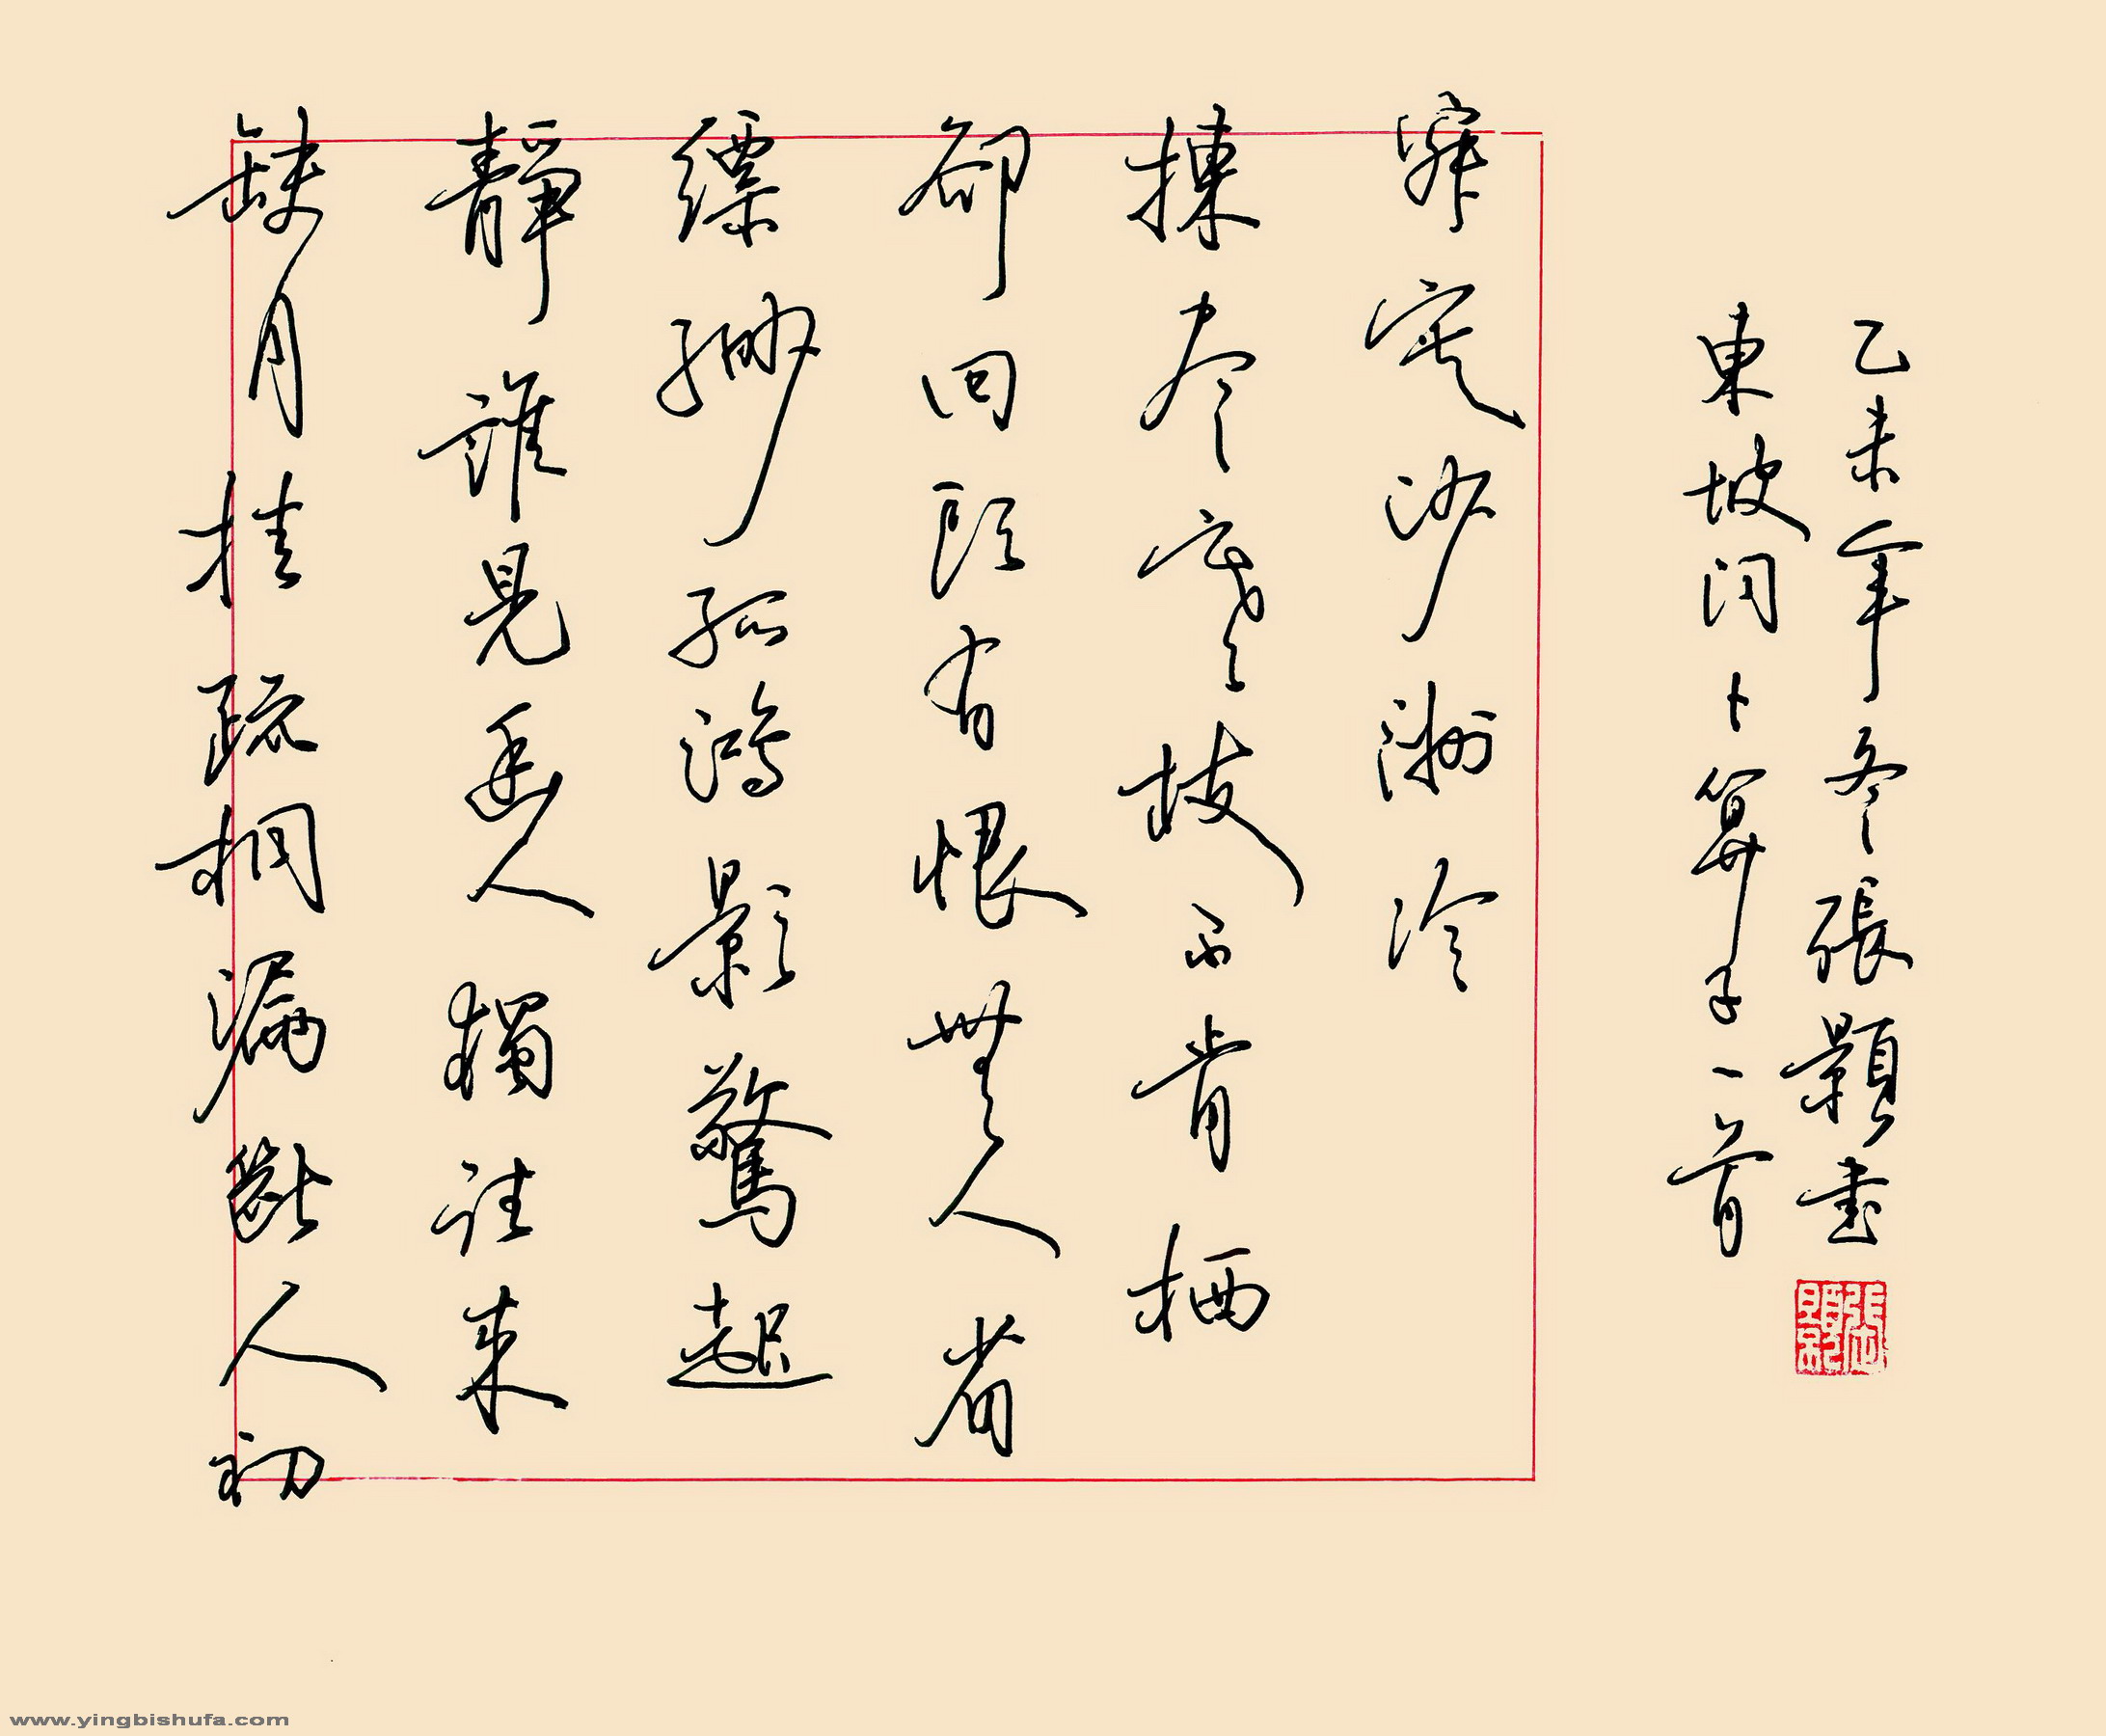 缺月挂疏桐漏斷人初
靜誰見幽人獨往來
縹緲孤鴻影驚起
卻回頭有恨無人省
揀尽寒枝不肯栖
寂寞沙洲冷
東坡詞卜算子一首
乙未年冬張顥書
www.yingbishufa.com